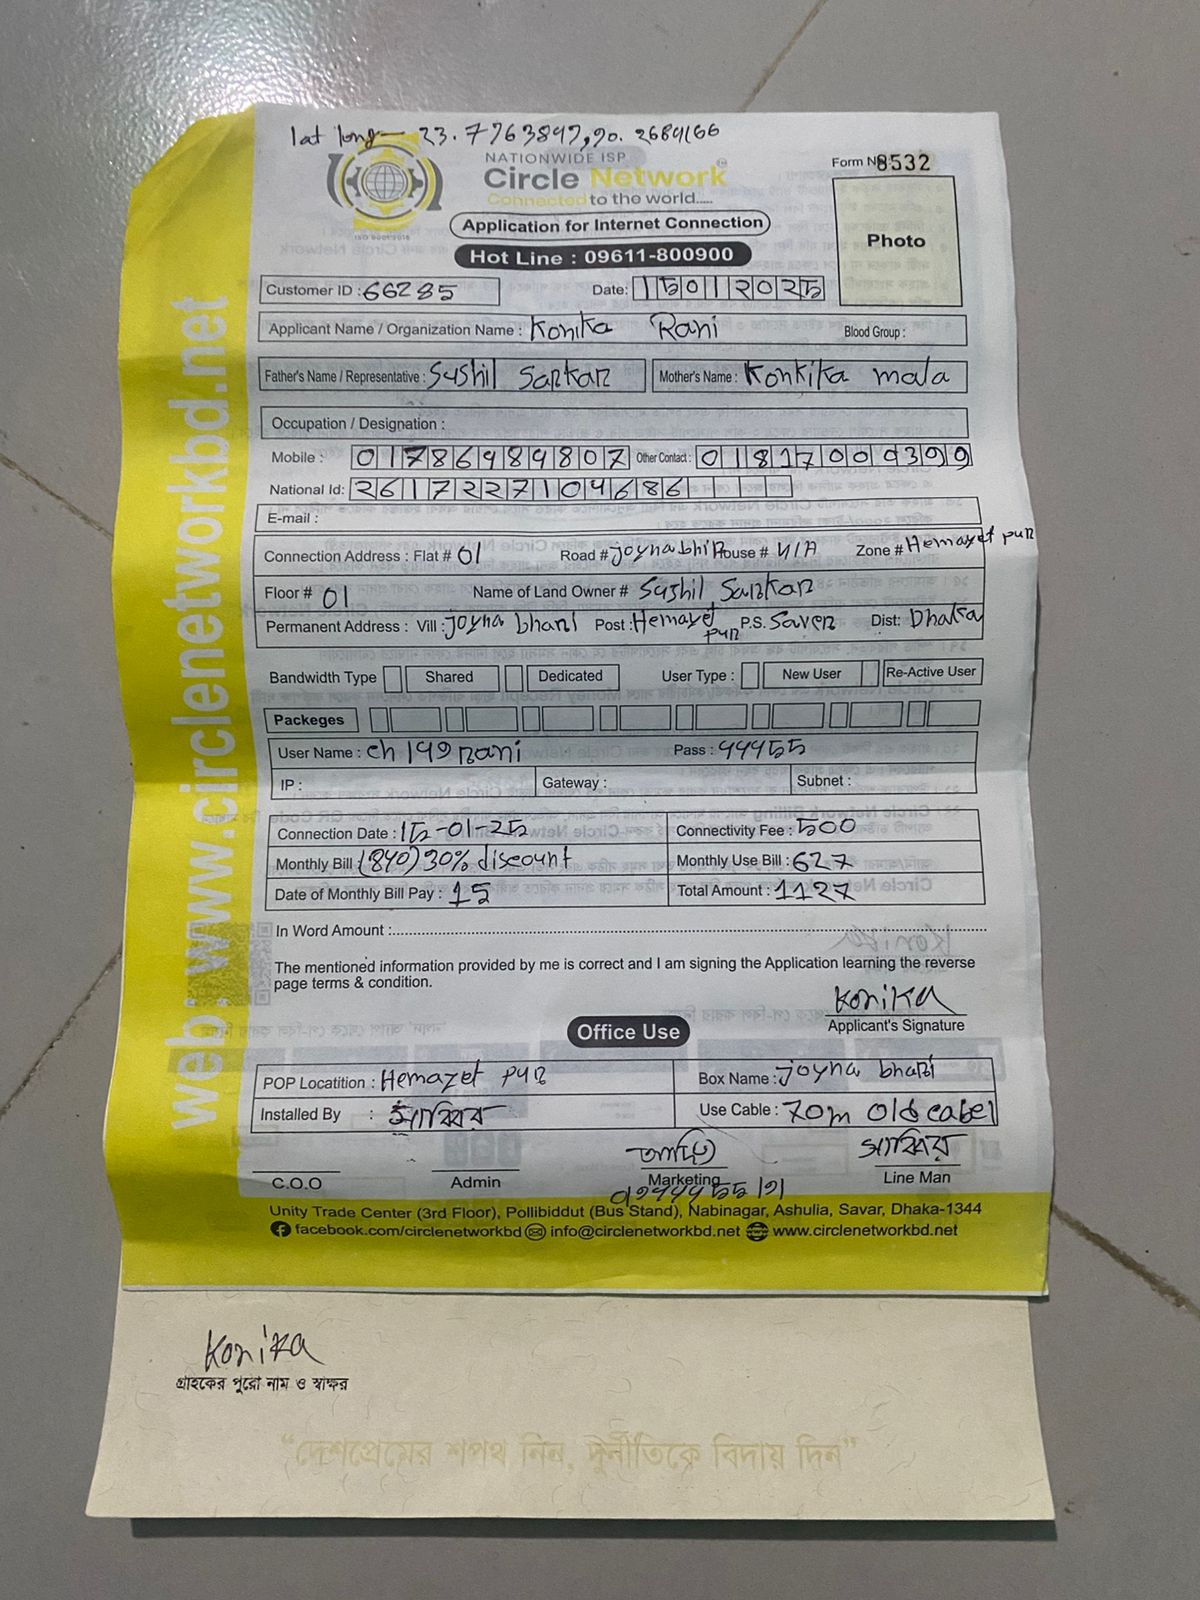 lat long— 23.7763847,90.2684166
NATIONWIDE ISP
Circle Network
Connected to the world.....
ISO 9001:2015
Form No 8532
Photo
Application for Internet Connection
Hot Line : 09611-800900
Customer ID : 66285 Date: 15012025
Applicant Name / Organization Name : Konika Rani Blood Group :
Father's Name / Representative : Sushil Sarkar Mother's Name : Konkika mala
Occupation / Designation :
Mobile : 01786984807 Other Contact : 01817000399
National Id: 2617227104686
E-mail :
Connection Address : Flat # 01 Road # joynabhiR House # N/A Zone # Hemayet pur
Floor # 01 Name of Land Owner # Sushil Sarkar
Permanent Address : Vill : joyna bhari Post : Hemayet pur P.S. Saver Dist: Dhaka
Bandwidth Type Shared Dedicated User Type : New User Re-Active User
Packeges
User Name : ch149rani Pass : 44455
IP : Gateway : Subnet :
Connection Date : 15-01-25 Connectivity Fee : 500
Monthly Bill (840) 30% discount Monthly Use Bill : 627
Date of Monthly Bill Pay : 15 Total Amount : 1127
In Word Amount :
The mentioned information provided by me is correct and I am signing the Application learning the reverse
page terms & condition.
Konika
Applicant's Signature
Office Use
POP Locatition : Hemayet pur Box Name : joyna bhari
Installed By : সাব্বির Use Cable : 70m Old cabel
সাব্বির
C.O.O Admin Marketing Line Man
Unity Trade Center (3rd Floor), Pollibiddut (Bus Stand), Nabinagar, Ashulia, Savar, Dhaka-1344
facebook.com/circlenetworkbd info@circlenetworkbd.net www.circlenetworkbd.net
web: www.circlenetworkbd.net
Konika
গ্রাহকের পুরো নাম ও স্বাক্ষর
“দেশপ্রেমের শপথ নিন, দুর্নীতিকে বিদায় দিন”